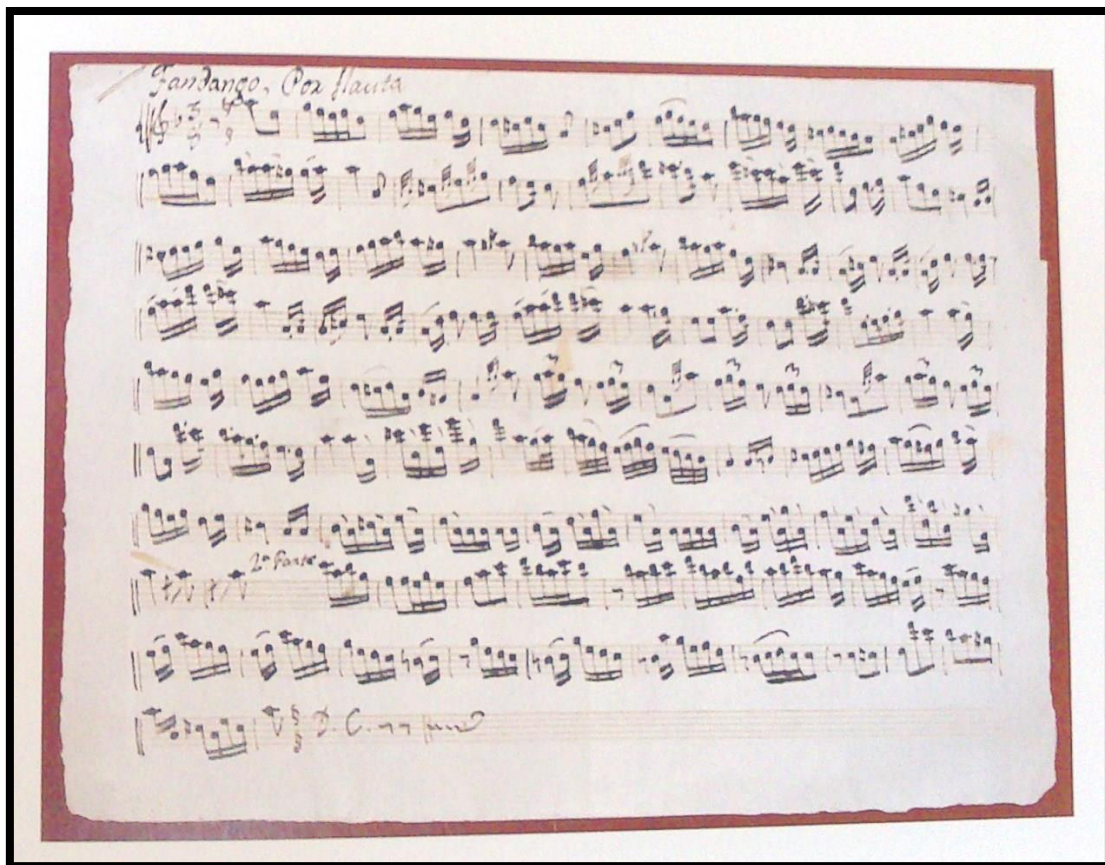 Fandango, Por flauta
2ª Parte
D. C.